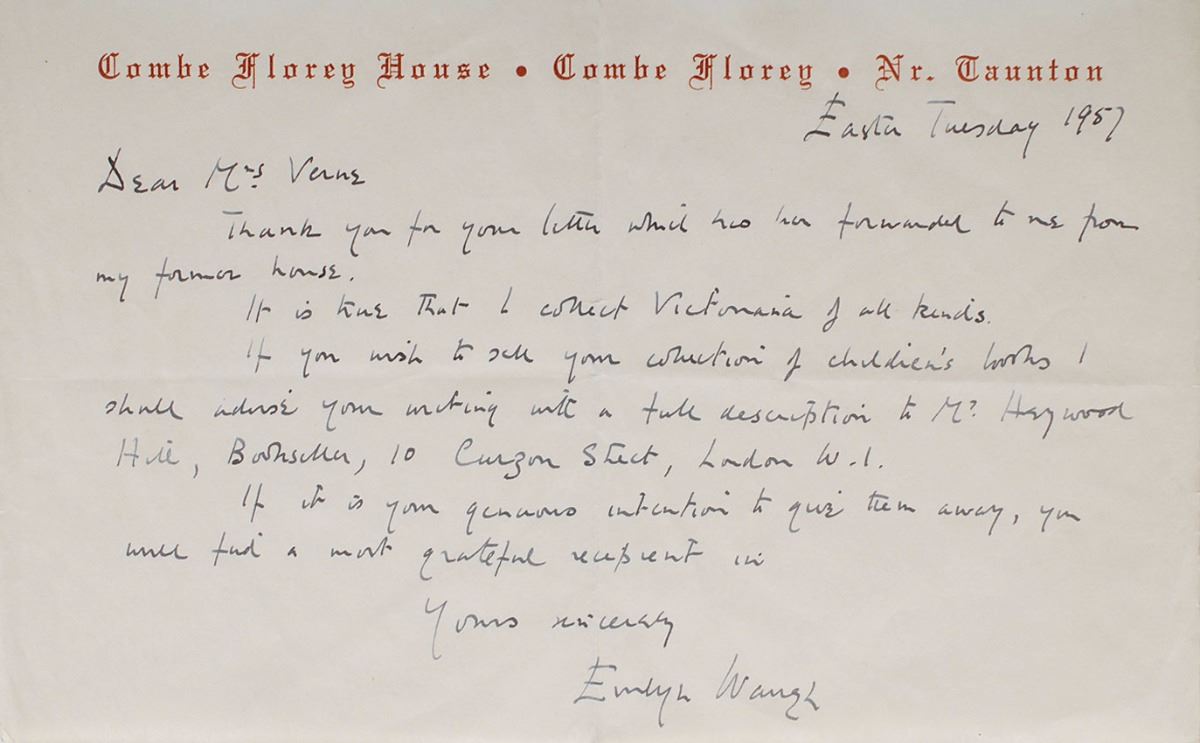 Combe Florey House • Combe Florey • Nr. Taunton
Easter Tuesday 1957
Dear Mrs Verne
Thank you for your letter which has been forwarded to me from
my former house.
It is true that I collect Victoriana of all kinds.
If you wish to sell your collection of children's books I
shall advise your writing with a full description to Mr Heywood
Hill, Bookseller, 10 Curzon Street, London W.1.
If it is your generous intention to give them away, you
will find a most grateful recipient in
Yours sincerely
Evelyn Waugh